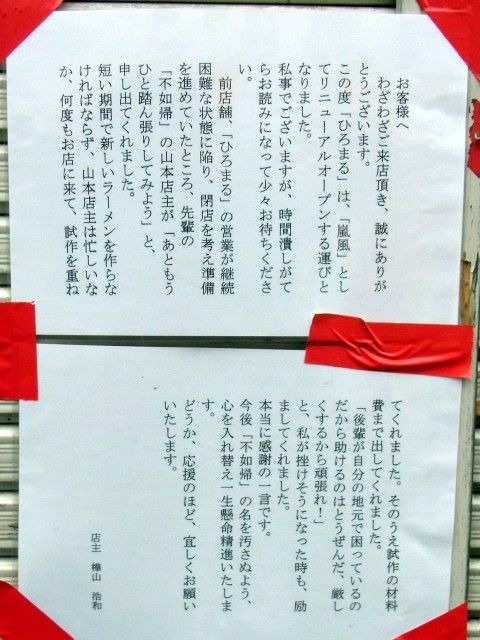 お客様へ
わざわざご来店頂き、誠にありが
とうございます。
この度「ひろまる」は、「嵐風」とし
てリニューアルオープンする運びと
なりました。
私事でございますが、時間潰しがて
らお読みになって少々お待ちくださ
い。
前店舗、「ひろまる」の営業が継続
困難な状態に陥り、閉店を考え準備
を進めていたところ、先輩の
「不如帰」の山本店主が「あともう
ひと踏ん張りしてみよう」と、
申し出てくれました。
短い期間で新しいラーメンを作らな
ければならず、山本店主は忙しいな
か、何度もお店に来て、試作を重ね
てくれました。そのうえ試作の材料
費まで出してくれました。
「後輩が自分の地元で困っているの
だから助けるのはとうぜんだ、厳し
くするから頑張れ！」
と、私が挫けそうになった時も、励
ましてくれました。
本当に感謝の一言です。
今後「不如帰」の名を汚さぬよう、
心を入れ替え一生懸命精進いたしま
す。
どうか、応援のほど、宜しくお願い
いたします。
店主 樺山 浩和